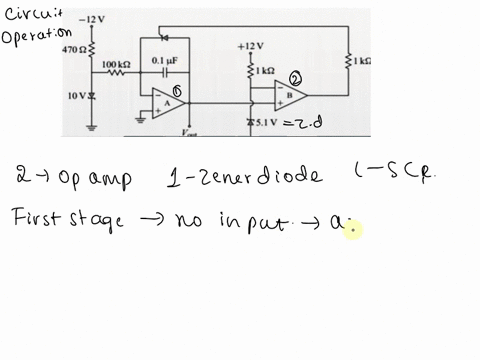 Circuit
Operation
-12V
470 Ω
100 kΩ
0.1 μF
10 V
-
+
A
①
V
+12 V
1 kΩ
②
-
+
B
5.1 V = z.d
1 kΩ
2 → op amp 1-Zener diode 1-SCR
First stage → no input → a